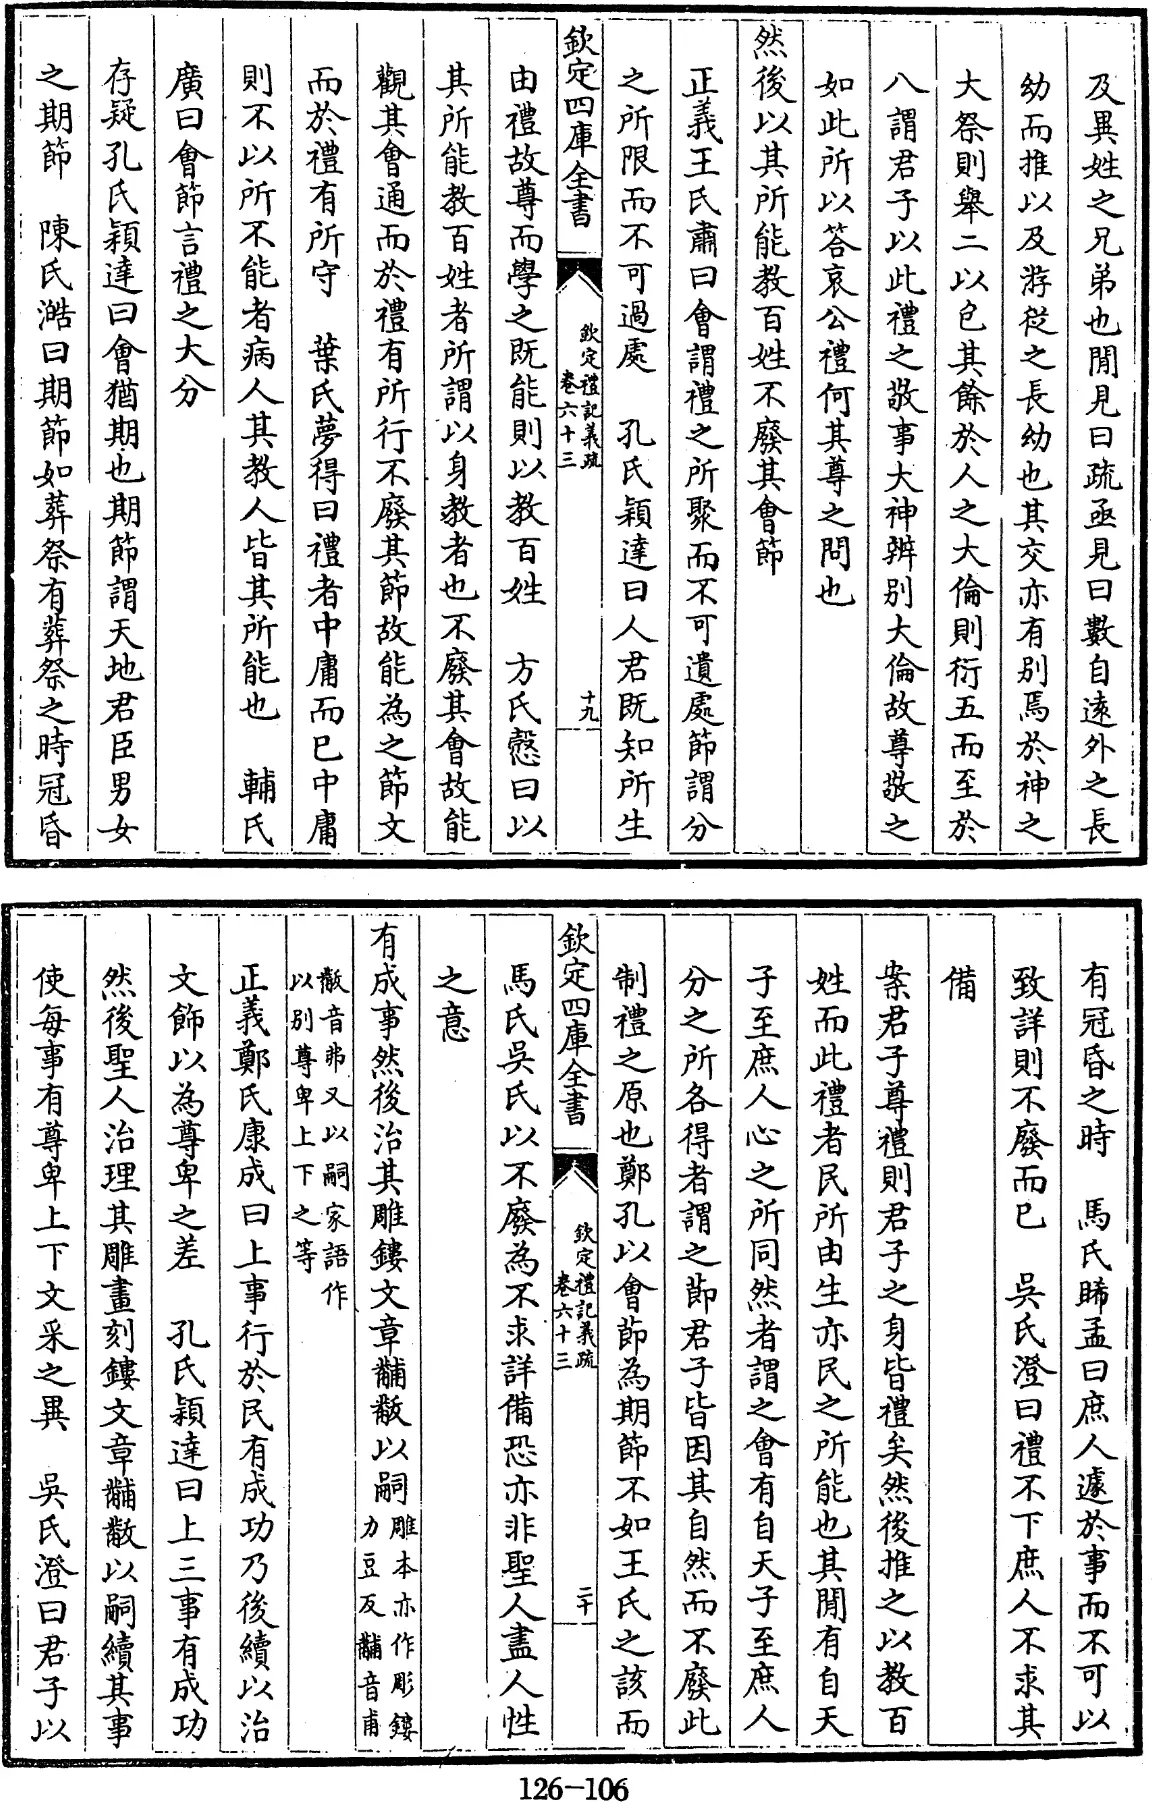 及異姓之兄弟也閒見曰疏亟見曰數自遠外之長
幼而推以及游從之長幼也其交亦有別焉於神之
大祭則舉二以包其餘於人之大倫則衍五而至於
八謂君子以此禮之敬事大神辨别大倫故尊敬之
如此所以答哀公禮何其尊之問也
然後以其所能教百姓不廢其會節
正義王氏肅曰會謂禮之所聚而不可遺處節謂分
之所限而不可過處 孔氏穎達曰人君既知所生
欽定四庫全書
欽定禮記義疏
卷六十三
十九
由禮故尊而學之既能則以教百姓 方氏慤曰以
其所能教百姓者所謂以身教者也不廢其會故能
觀其會通而於禮有所行不廢其節故能為之節文
而於禮有所守 葉氏夢得曰禮者中庸而已中庸
則不以所不能者病人其教人皆其所能也 輔氏
廣曰會節言禮之大分
存疑孔氏穎達曰會猶期也期節謂天地君臣男女
之期節 陳氏澔曰期節如葬祭有葬祭之時冠昏
有冠昏之時 馬氏睎孟曰庶人遽於事而不可以
致詳則不廢而已 吳氏澄曰禮不下庶人不求其
備
案君子尊禮則君子之身皆禮矣然後推之以教百
姓而此禮者民所由生亦民之所能也其閒有自天
子至庶人心之所同然者謂之會有自天子至庶人
分之所各得者謂之節君子皆因其自然而不廢此
制禮之原也鄭孔以會節為期節不如王氏之該而
欽定四庫全書
欽定禮記義疏
卷六十三
二十
馬氏吳氏以不廢為不求詳備恐亦非聖人盡人性
之意
有成事然後治其雕鏤文章黼黻以嗣
雕本亦作彫鏤
力豆反黼音甫
黻音弗又以嗣家語作
以別尊卑上下之等
正義鄭氏康成曰上事行於民有成功乃後續以治
文飾以為尊卑之差 孔氏穎達曰上三事有成功
然後聖人治理其雕畫刻鏤文章黼黻以嗣續其事
使每事有尊卑上下文采之異 吳氏澄曰君子以
126-106